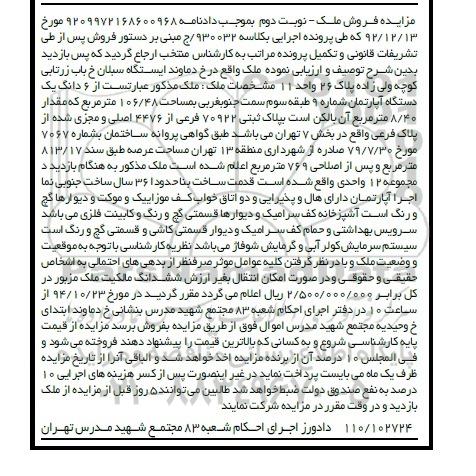 مزایـده فـروش ملـک - نوبـت دوم بموجـب دادنامـه ۹۲۰۹۹۷۲۱۶۸۶۰۰۹۶۸ مورخ
۹۲/۱۲/۱۳ که طی پرونده اجرایی بکلاسه ۹۳۰۰۳۲/ج مبنی بر دستور فروش پس از طی
تشریفات قانونی و تکمیل پرونده مراتب به کارشناس منتخب ارجاع گردید که پس بازدید
بدین شـرح توصیف و ارزیابی نموده ملک واقع در خ دماوند ایستگاه سبلان خ باب زرتابی
کوچه ولی زاده پلاک ۲۶ واحد ۱۱ مشخصات ملک : ملک مذکور عبارتست از ۶ دانگ یک
دستگاه آپارتمان شماره ۹ طبقه سوم سمت جنوبغربی بمساحت ۱۰۶/۴۸ مترمربع که مقدار
۸/۴۰ مترمربع آن بالکن است بپلاک ثبتی ۷۰۹۲۲ فرعی از ۴۴۷۶ اصلی و مجزی شده از
پلاک فرعی واقع در بخش ۷ تهران می باشد طبق گواهی پروانه ساختمان بشماره ۷۰۶۷
مورخ ۷۹/۷/۳۰ صادره از شهرداری منطقه ۱۳ تهران مساحت عرصه طبق سند ۸۱۳/۱۷
مترمربع و پس از اصلاحی ۷۶۹ مترمربع اعلام شده است ملک مذکور به هنگام بازدید د
مجموعه ۱۲ واحدی واقع شده است قدمت ساخت بنا حدودا ۳۶ سال ساخت جنوبی نما
آجر/ آپارتمان دارای هال و پذیرایی و دو اتاق خواب کف موزاییک و موکت و دیوارها گچ
و رنگ است آشپزخانه کف سرامیک و دیوارها قسمتی گچ و رنگ و کابینت فلزی می باشد
سرویس بهداشتی و حمام کف سرامیک و دیوار قسمتی کاشی و قسمتی گچ و رنگ است
سیستم سرمایش کولر آبی و گرمایش شوفاژ می باشد نظریه کارشناسی با توجه به موقعیت
و وضعیت ملک و با در نظر گرفتن کلیه عوامل موثر صرفنظر از بدهی های احتمالی به اشخاص
حقیقی و حقوقی و در صورت امکان انتقال بغیر ارزش ششدانگ مالکیت ملک مزبور در
کل برابر ۲/۵۰۰/۰۰۰/۰۰۰ ریال اعلام می گردد مقرر گردید در مورخ ۹۴/۱۰/۲۳ از
ساعت ۱۰ در دفتر اجرای احکام شعبه ۸۳ مجتمع شهید مدرس بنشانی خ دماوند ابتدای
خ وحیدیه مجتمع شهید مدرس اموال فوق از طریق مزایده بفروش برسد مزایده از قیمت
پایه کارشناسی شروع و به کسانی که بالاترین قیمت را پیشنهاد دهند فروخته می شود و
فی المجلس ۱۰ درصد آن از برنده مزایده اخذ خواهد شد و الباقی آنرا از تاریخ مزایده
ظرف یک ماه می بایست پرداخت نماید در غیر اینصورت پس از کسر هزینه های اجرایی ۱۰
درصد به نفع صندوق دولت ضبط خواهد شد طالبین می توانند ۵ روز قبل از مزایده از ملک
بازدید و در وقت مقرر در مزایده شرکت نمایند
۱۱۰/۱۰۲۷۲۴ دادورز اجرای احکام شعبه ۸۳ مجتمع شهید مدرس تهران